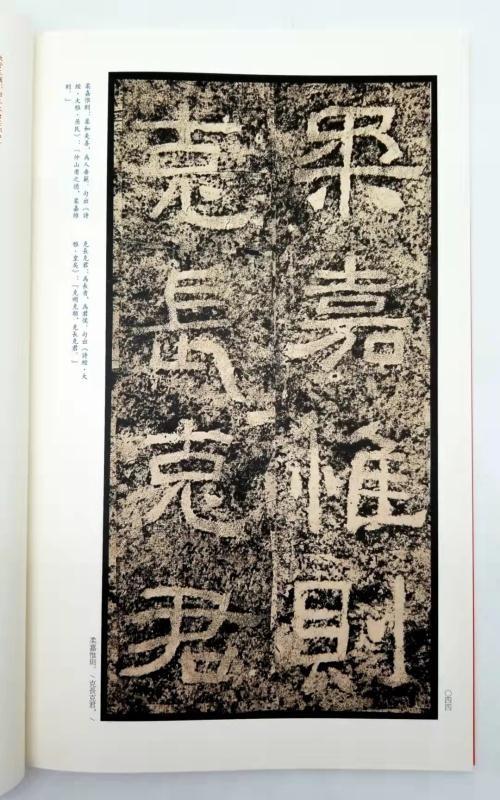 柔嘉惟則
克長克君
柔嘉惟則：柔和美善，為人垂範。句出《詩
經·大雅·烝民》：「仲山甫之德，柔嘉維
則。」
克長克君：為長者，為君侯。句出《詩經·大
雅·皇矣》：「克明克類，克長克君。」
柔嘉惟則。/克長克君，/
〇四四